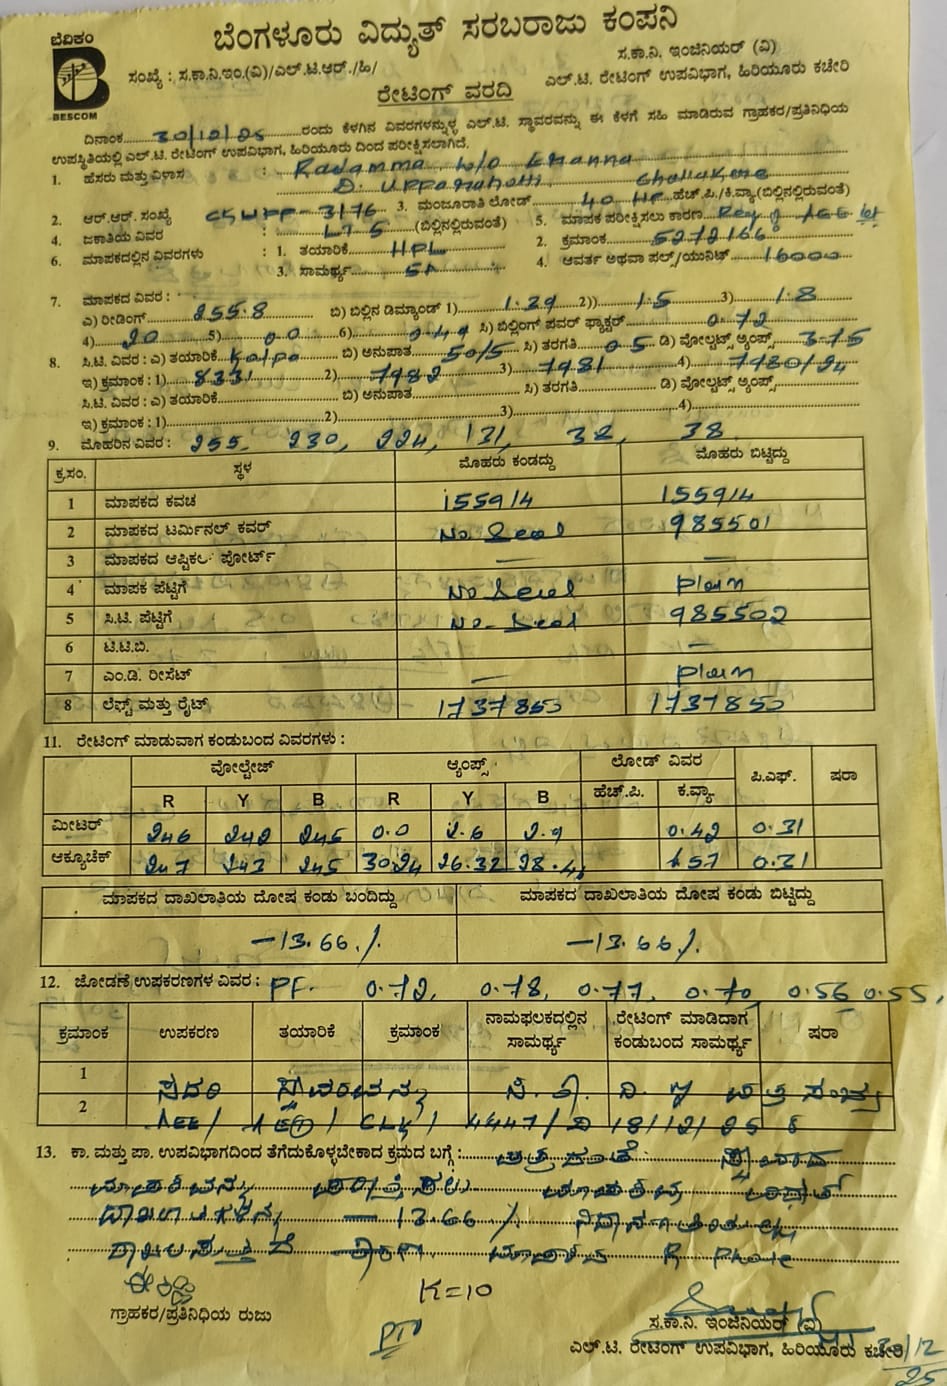 ಬೆವಿಕಂ
BESCOM
ಬೆಂಗಳೂರು ವಿದ್ಯುತ್ ಸರಬರಾಜು ಕಂಪನಿ
ಸ.ಕಾ.ನಿ. ಇಂಜಿನಿಯರ್ (ವಿ)
ಸಂಖ್ಯೆ : ಸ.ಕಾ.ನಿ.ಇಂ.(ವಿ)/ಎಲ್.ಟಿ.ಆರ್./ಹಿ/
ಎಲ್.ಟಿ. ರೇಟಿಂಗ್ ಉಪವಿಭಾಗ, ಹಿರಿಯೂರು ಕಚೇರಿ
ರೇಟಿಂಗ್ ವರದಿ
ದಿನಾಂಕ 30/12/25 ರಂದು ಕೆಳಗಿನ ವಿವರಗಳನ್ನುಳ್ಳ ಎಲ್.ಟಿ. ಸ್ಥಾವರವನ್ನು ಈ ಕೆಳಗೆ ಸಹಿ ಮಾಡಿರುವ ಗ್ರಾಹಕರ/ಪ್ರತಿನಿಧಿಯ
ಉಪಸ್ಥಿತಿಯಲ್ಲಿ ಎಲ್.ಟಿ. ರೇಟಿಂಗ್ ಉಪವಿಭಾಗ, ಹಿರಿಯೂರು ದಿಂದ ಪರೀಕ್ಷಿಸಲಾಗಿದೆ.
1. ಹೆಸರು ಮತ್ತು ವಿಳಾಸ : Radamma w/o
D.
2. ಆರ್.ಆರ್. ಸಂಖ್ಯೆ 3176 3. ಮಂಜೂರಾತಿ ಲೋಡ್ 40 HP ಹೆಚ್.ಪಿ./ಕಿ.ವ್ಯಾ(ಬಿಲ್ಲಿನಲ್ಲಿರುವಂತೆ)
4. ಜಕಾತಿಯ ವಿವರ : LT 5 (ಬಿಲ್ಲಿನಲ್ಲಿರುವಂತೆ) 5. ಮಾಪಕ ಪರೀಕ್ಷಿಸಲು ಕಾರಣ
6. ಮಾಪಕದಲ್ಲಿನ ವಿವರಗಳು : 1. ತಯಾರಿಕೆ HPL 2. ಕ್ರಮಾಂಕ 5272166
3. ಸಾಮರ್ಥ್ಯ 5A 4. ಆವರ್ತ ಅಥವಾ ಪಲ್ಸ್/ಯುನಿಟ್ 16000
7. ಮಾಪಕದ ವಿವರ :
ಎ) ರೀಡಿಂಗ್ 255.8 ಬಿ) ಬಿಲ್ಲಿನ ಡಿಮ್ಯಾಂಡ್ 1) 1.29 2)) 1.5 3) 1.8
4) 20 5) 0.0 6) 0.49 ಸಿ) ಬಿಲ್ಲಿಂಗ್ ಪವರ್ ಫ್ಯಾಕ್ಟರ್ 0.72
8. ಸಿ.ಟಿ. ವಿವರ : ಎ) ತಯಾರಿಕೆ Kalpa ಬಿ) ಅನುಪಾತ 50/5 ಸಿ) ತರಗತಿ 0.5 ಡಿ) ವೋಲ್ಟಟ್ಸ್ ಆ್ಯಂಪ್ಸ್ 3.75
ಇ) ಕ್ರಮಾಂಕ : 1) 8331 2) 7982 3) 7981 4) 7980/24
ಸಿ.ಟಿ. ವಿವರ : ಎ) ತಯಾರಿಕೆ ಬಿ) ಅನುಪಾತ ಸಿ) ತರಗತಿ ಡಿ) ವೋಲ್ಟಟ್ಸ್ ಆ್ಯಂಪ್ಸ್
ಇ) ಕ್ರಮಾಂಕ : 1) 2) 3) 4)
9. ಮೊಹರಿನ ವಿವರ : 255, 230, 224, 131, 32, 38
ಕ್ರ.ಸಂ. ಸ್ಥಳ ಮೊಹರು ಕಂಡದ್ದು ಮೊಹರು ಬಿಟ್ಟಿದ್ದು
1 ಮಾಪಕದ ಕವಚ 155914 155914
2 ಮಾಪಕದ ಟರ್ಮಿನಲ್ ಕವರ್ No Seal 985501
3 ಮಾಪಕದ ಆಪ್ಟಿಕಲ್ ಪೋರ್ಟ್ — —
4 ಮಾಪಕ ಪೆಟ್ಟಿಗೆ No Seal plain
5 ಸಿ.ಟಿ. ಪೆಟ್ಟಿಗೆ No Seal 985502
6 ಟಿ.ಟಿ.ಬಿ. —
7 ಎಂ.ಡಿ. ರೀಸೆಟ್ — plain
8 ಲೆಫ್ಟ್ ಮತ್ತು ರೈಟ್ 1737850 1737850
11. ರೇಟಿಂಗ್ ಮಾಡುವಾಗ ಕಂಡುಬಂದ ವಿವರಗಳು :
ವೋಲ್ಟೇಜ್ ಆ್ಯಂಪ್ಸ್ ಲೋಡ್ ವಿವರ ಪಿ.ಎಫ್. ಷರಾ
R Y B R Y B ಹೆಚ್.ಪಿ. ಕ.ವ್ಯಾ.
ಮೀಟರ್ 246 242 245 0.0 2.6 2.9 0.42 0.31
ಆಕ್ಯೂಚೆಕ್ 247 243 245 30.24 26.32 28.4 0.31
ಮಾಪಕದ ದಾಖಲಾತಿಯ ದೋಷ ಕಂಡು ಬಂದಿದ್ದು ಮಾಪಕದ ದಾಖಲಾತಿಯ ದೋಷ ಕಂಡು ಬಿಟ್ಟಿದ್ದು
-13.66 % -13.66 %
12. ಜೋಡಣೆ ಉಪಕರಣಗಳ ವಿವರ : PF. 0.72, 0.78, 0.77, 0.70 0.56 0.55,
ಕ್ರಮಾಂಕ ಉಪಕರಣ ತಯಾರಿಕೆ ಕ್ರಮಾಂಕ ನಾಮಫಲಕದಲ್ಲಿನ ಸಾಮರ್ಥ್ಯ ರೇಟಿಂಗ್ ಮಾಡಿದಾಗ ಕಂಡುಬಂದ ಸಾಮರ್ಥ್ಯ ಷರಾ
1 ಸದರಿ ಪತ್ರ ಸಂಖ್ಯೆ
2 AEE/ CLK/ 4447/ 18/12/25
13. ಕಾ. ಮತ್ತು ಪಾ. ಉಪವಿಭಾಗದಿಂದ ತೆಗೆದುಕೊಳ್ಳಬೇಕಾದ ಕ್ರಮದ ಬಗ್ಗೆ :
-13.66 %
R Phase
K=10
ಗ್ರಾಹಕರ/ಪ್ರತಿನಿಧಿಯ ರುಜು
PTO
ಸ.ಕಾ.ನಿ. ಇಂಜಿನಿಯರ್ (ವಿ)
ಎಲ್.ಟಿ. ರೇಟಿಂಗ್ ಉಪವಿಭಾಗ, ಹಿರಿಯೂರು ಕಚೇರಿ